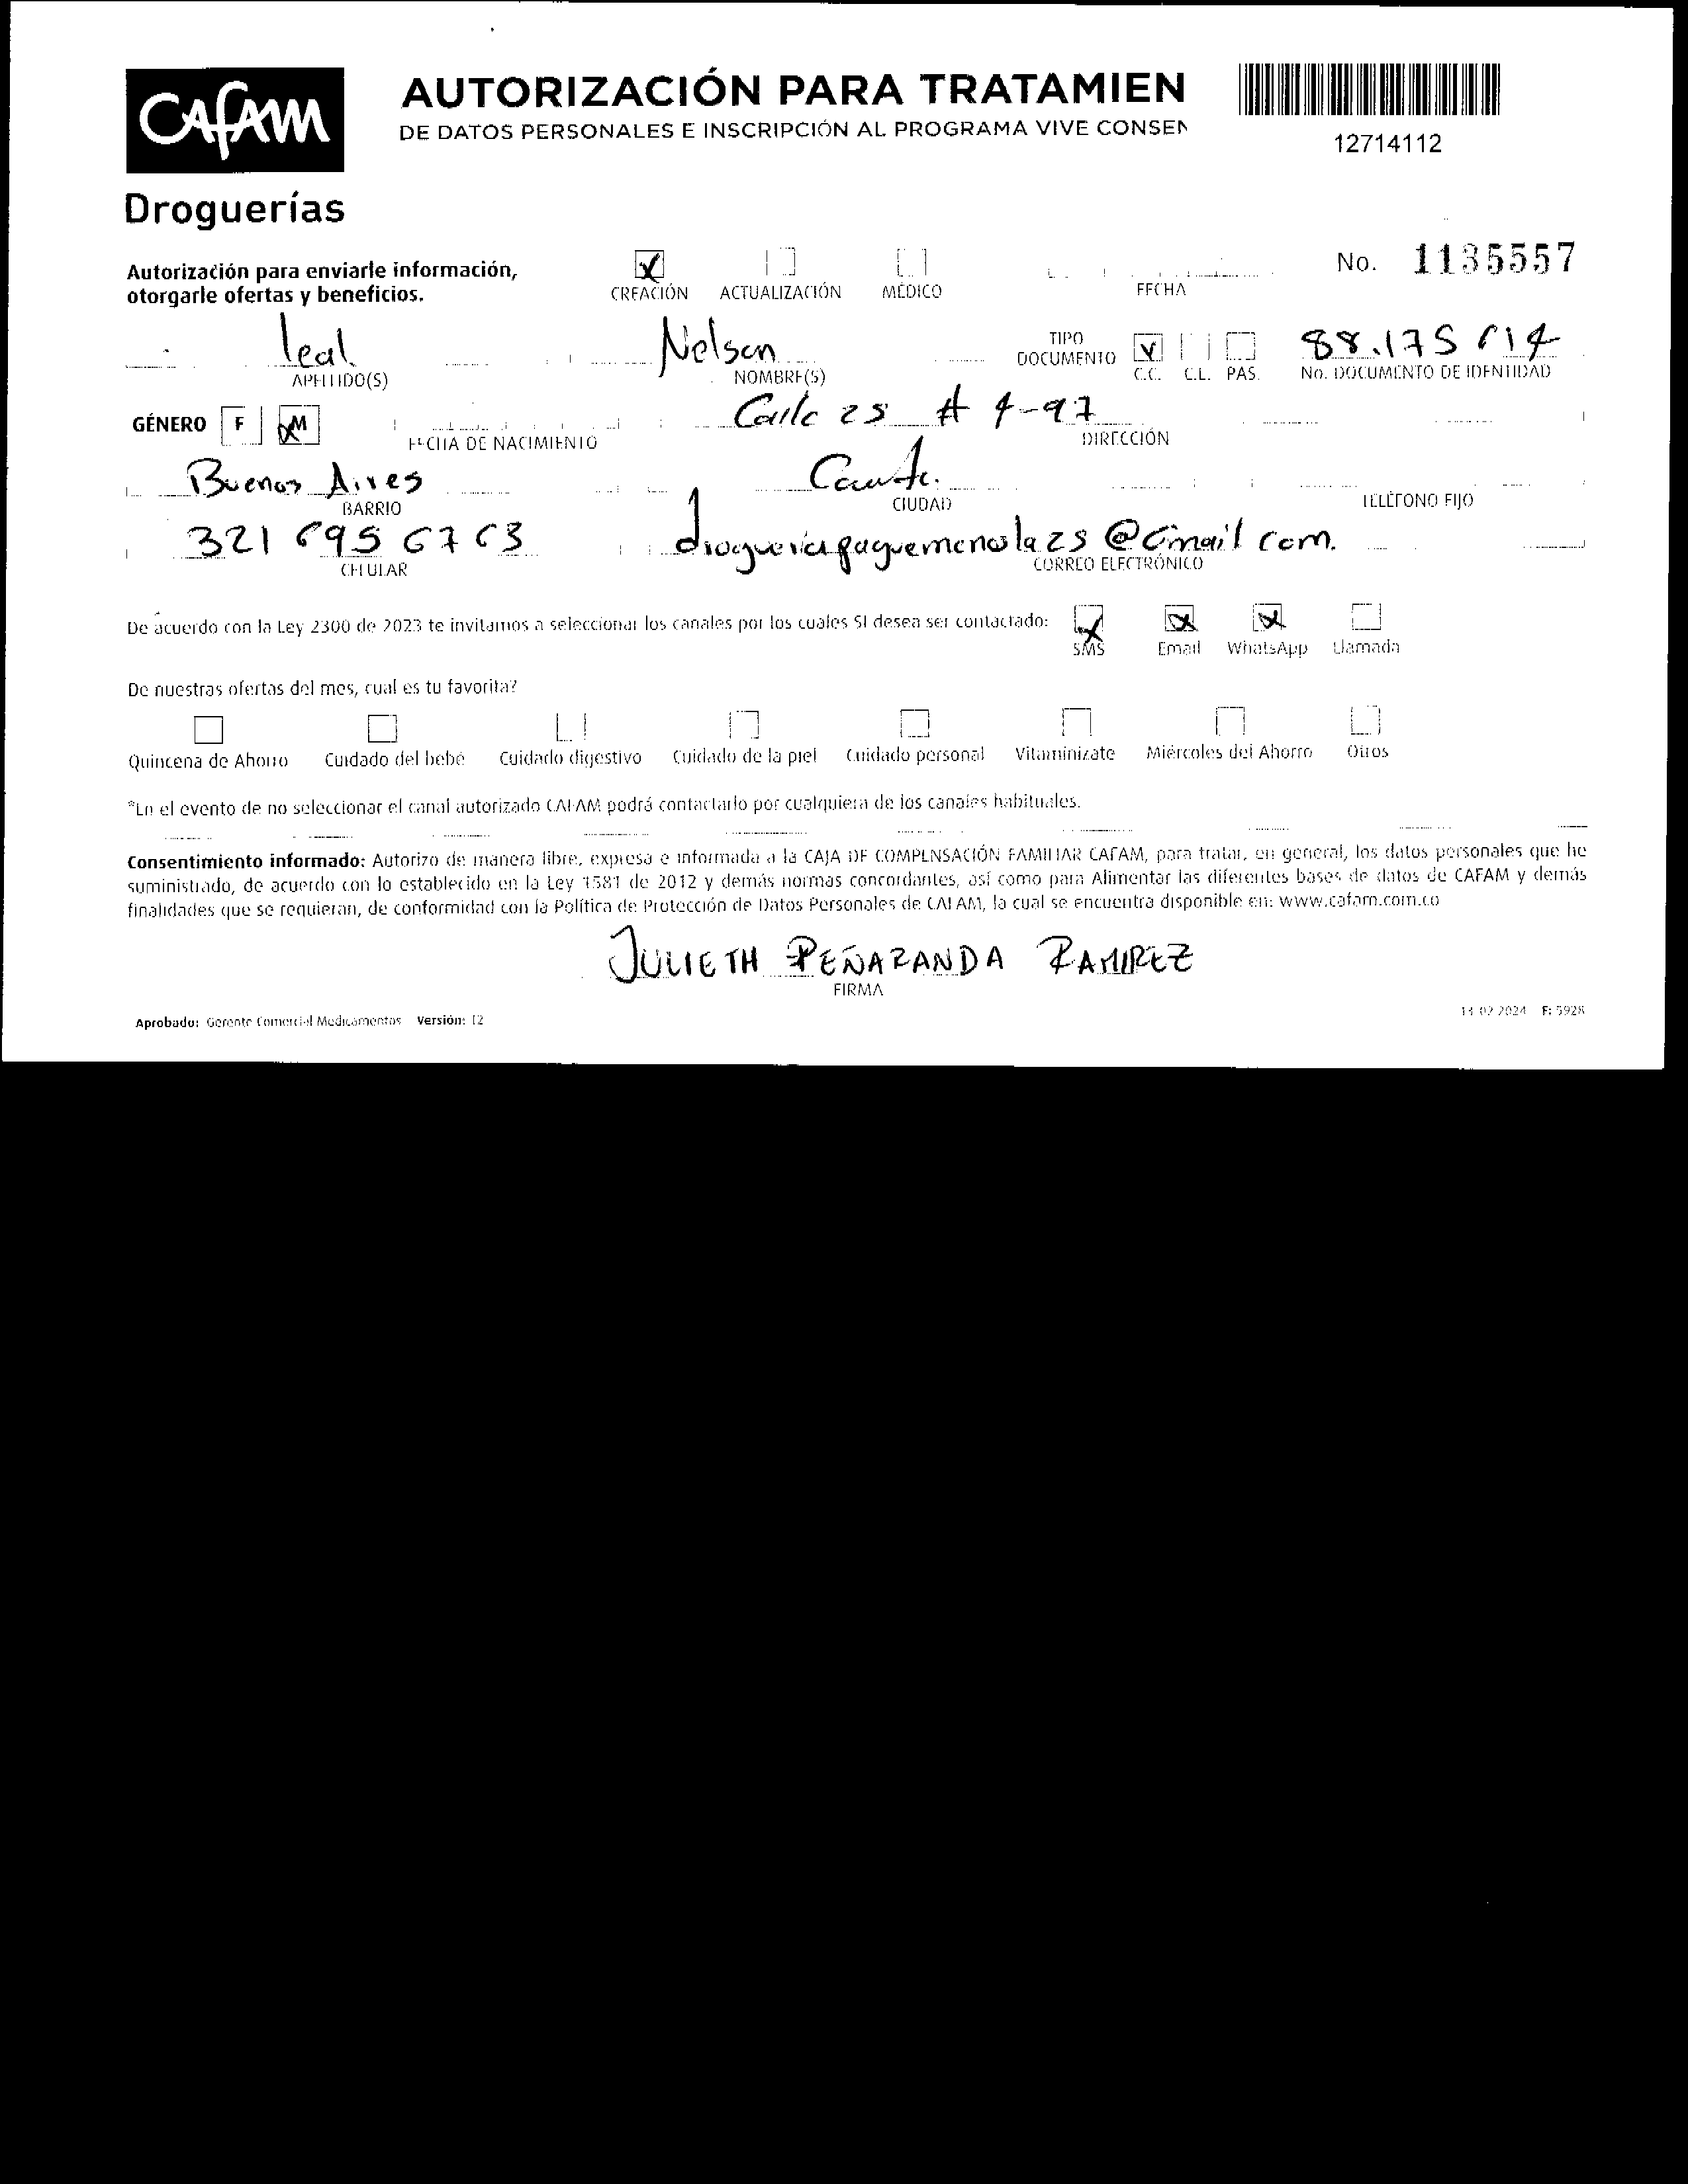 CAFAM
Droguerías
AUTORIZACIÓN PARA TRATAMIEN
DE DATOS PERSONALES E INSCRIPCIÓN AL PROGRAMA VIVE CONSEN
12714112
Autorización para enviarle información,
otorgarle ofertas y beneficios.
X CREACIÓN ACTUALIZACIÓN MÉDICO FECHA No. 1135557
Leal Nelson TIPO DOCUMENTO X C.C. C.E. PAS. 88.175 614
APELLIDO(S) NOMBRE(S) No. DOCUMENTO DE IDENTIDAD
GÉNERO F M Calle 25 # 4-97
FECHA DE NACIMIENTO DIRECCIÓN
Buenos Aires
BARRIO CIUDAD TELÉFONO FIJO
321 695 6763 drogueriapaguemenosla25@Gmail com.
CELULAR CORREO ELECTRÓNICO
De acuerdo con la Ley 2300 de 2023 te invitamos a seleccionar los canales por los cuales SI desea ser contactado:
SMS Email WhatsApp Llamada
De nuestras ofertas del mes, cual es tu favorita?
Quincena de Ahorro Cuidado del bebé Cuidado digestivo Cuidado de la piel Cuidado personal Vitaminízate Miércoles del Ahorro Otros
*En el evento de no seleccionar el canal autorizado CAFAM podrá contactarlo por cualquiera de los canales habituales.
Consentimiento informado: Autorizo de manera libre, expresa e informada a la CAJA DE COMPENSACIÓN FAMILIAR CAFAM, para tratar, en general, los datos personales que he
suministrado, de acuerdo con lo establecido en la Ley 1581 de 2012 y demás normas concordantes, así como para Alimentar las diferentes bases de datos de CAFAM y demás
finalidades que se requieran, de conformidad con la Política de Protección de Datos Personales de CAFAM, la cual se encuentra disponible en: www.cafam.com.co
JULIETH PEÑARANDA RAMIREZ
FIRMA
Aprobado: Gerente Comercial Medicamentos Versión: 12
13 02 2024 F: 5928